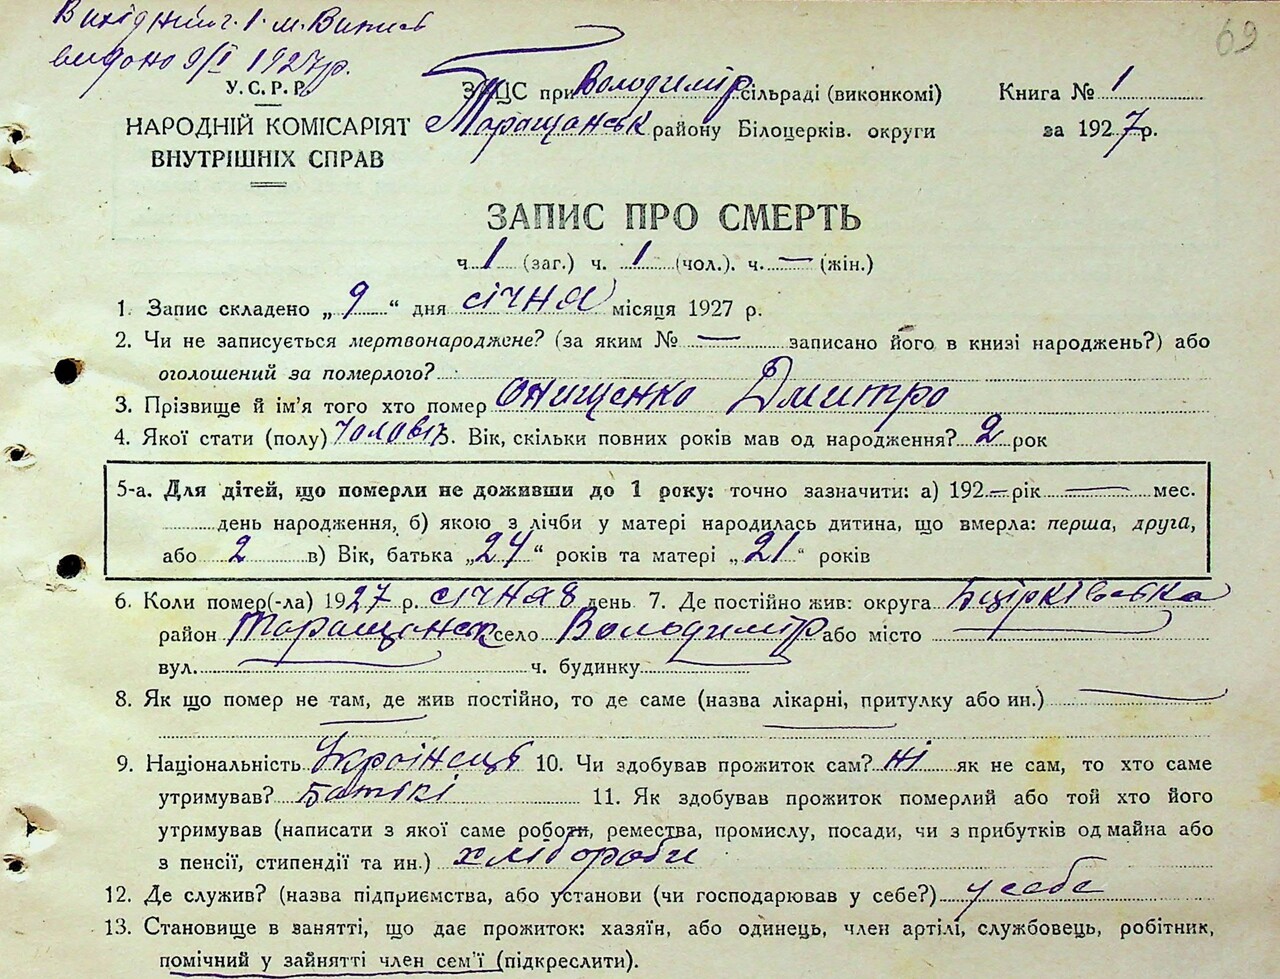 69
видано 9/I 1927 р.
У.С.Р.Р.
ЗАЦС при Володимір. сільраді (виконкомі)
Книга № 1
НАРОДНІЙ КОМІСАРІЯТ
Таращанськ району Білоцерків. округи
за 1927 р.
ВНУТРІШНІХ СПРАВ
ЗАПИС ПРО СМЕРТЬ
ч. 1 (заг.) ч. 1 (чол.). ч. — (жін.)
1. Запис складено „ 9 “ дня січня місяця 1927 р.
2. Чи не записується мертвонароджене? (за яким № — записано його в книзі народжень?) або
оголошений за померлого?
3. Прізвище й ім'я того хто помер Онищенко Дмитро
4. Якої стати (полу) чоловіч. Вік, скільки повних років мав од народження? 2 рок
5-а. Для дітей, що померли не доживши до 1 року: точно зазначити: а) 192 — рік — мес.
день народження, б) якою з лічби у матері народилась дитина, що вмерла: перша, друга,
або 2 в) Вік, батька „ 24 “ років та матері „ 21 “ років
6. Коли помер(-ла) 1927 р. січня 8 день 7. Де постійно жив: округа Бцирківська
район Таращанськ село Володимір або місто —
вул. — ч. будинку —
8. Як що помер не там, де жив постійно, то де саме (назва лікарні, притулку або ин.) —
9. Національність Українець 10. Чи здобував прожиток сам? ні як не сам, то хто саме
утримував? батькі 11. Як здобував прожиток померлий або той хто його
утримував (написати з якої саме роботи, ремества, промислу, посади, чи з прибутків од майна або
з пенсії, стипендії та ин.) хлібороби
12. Де служив? (назва підприємства, або установи (чи господарював у себе?) у себе
13. Становище в занятті, що дає прожиток: хазяїн, або одинець, член артілі, службовець, робітник,
помічний у зайнятті член сем'ї (підкреслити).